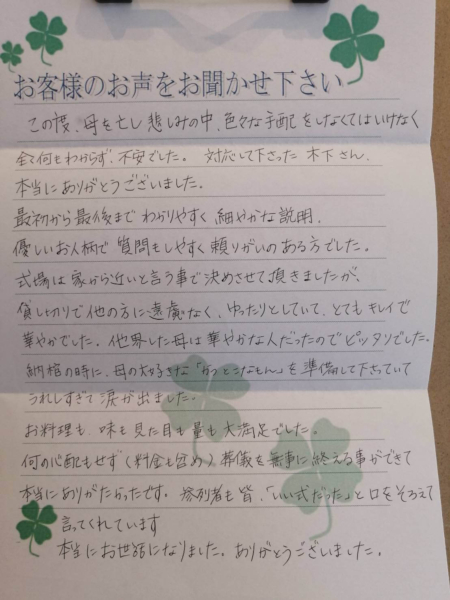 お客様のお声をお聞かせ下さい
この度、母を亡し悲しみの中、色々な手配をしなくてはいけなく
全く何もわからず、不安でした。対応して下さった木下さん、
本当にありがとうございました。
最初から最後までわかりやすく、細やかな説明、
優しいお人柄で質問もしやすく頼りがいのある方でした。
式場は家から近いと言う事で決めさせて頂きましたが、
貸し切りで他の方に遠慮なく、ゆったりとしていて、とてもキレイで
華やかでした。他界した母は華やかな人だったのでピッタリでした。
納棺の時に、母の大好きな「かつとこなもん」を準備して下さっていて
うれしすぎて涙が出ました。
お料理も、味も見た目も量も大満足でした。
何の心配もせず(料金も含め)葬儀を無事に終える事ができて
本当にありがたかったです。参列者も皆、「いい式だった」と口をそろえて
言ってくれています
本当にお世話になりました。ありがとうございました。